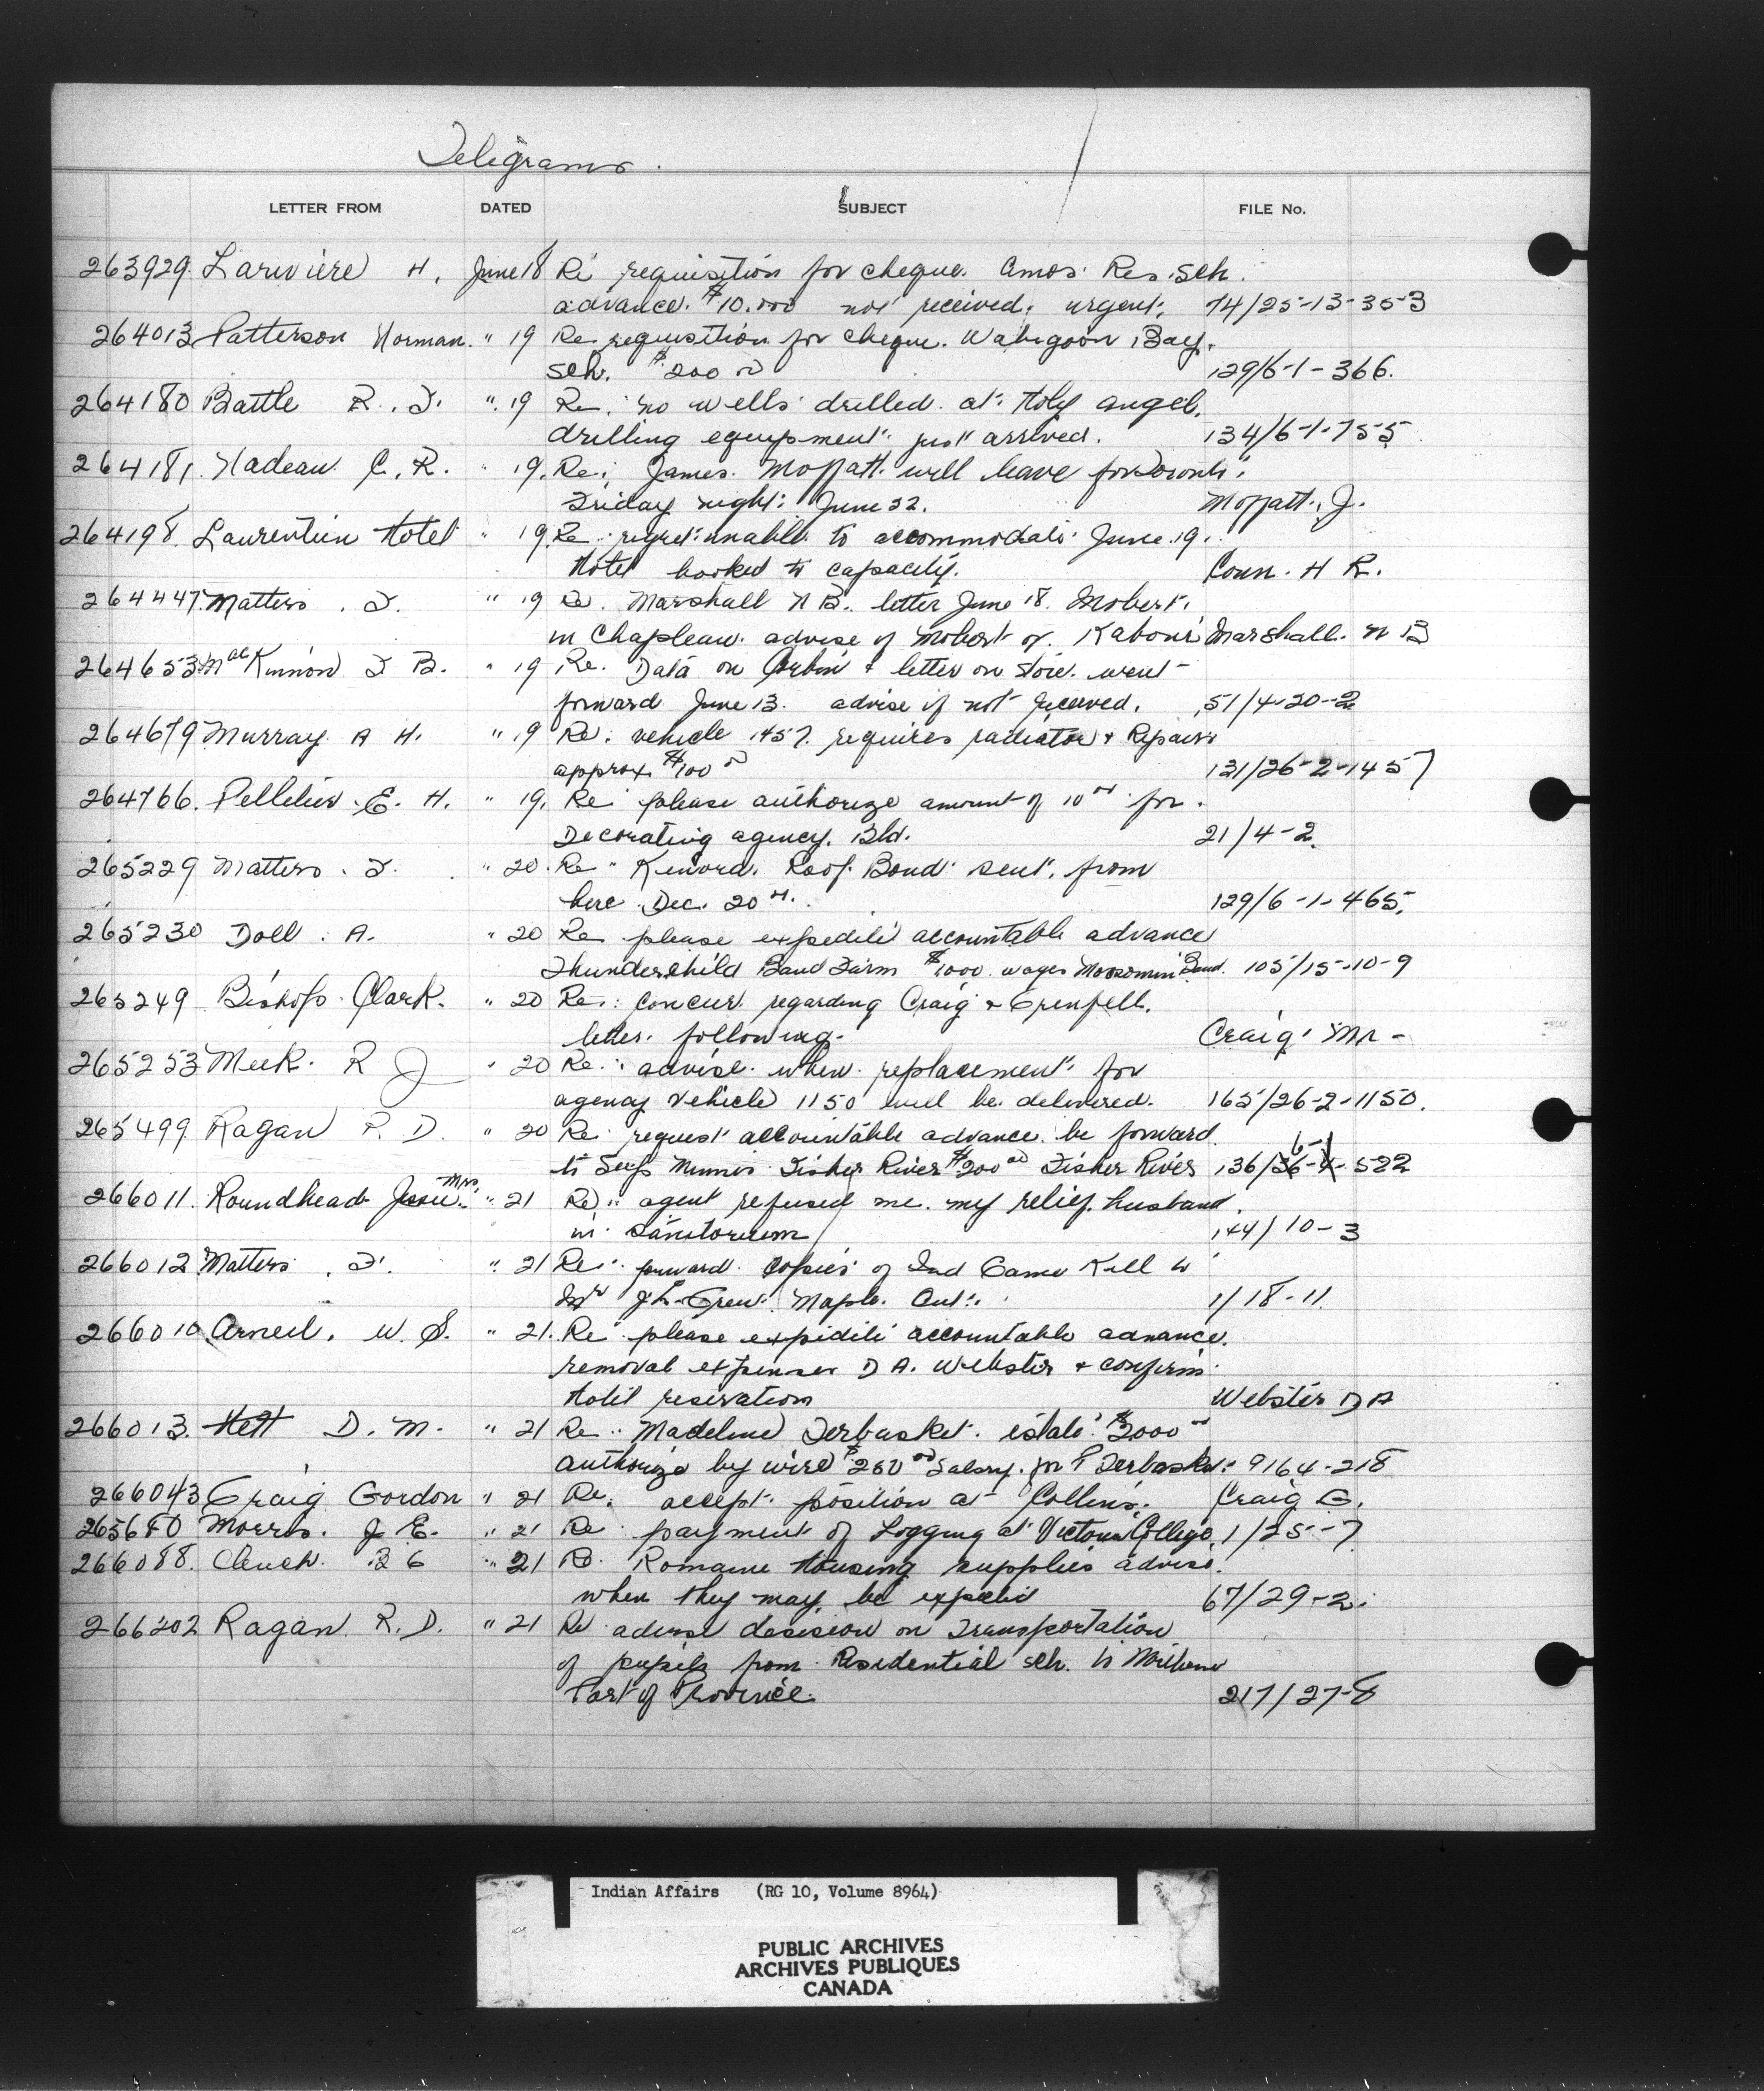 Telegrams.
LETTER FROM DATED SUBJECT FILE No.
263929. Lariviere H. June 18 Re requisition for cheque. Amos. Res. Sch.
advance. $10.000 not received. urgent. 74/25-13-353
264013 Patterson Norman. " 19 Re requisition for cheque. Wabigoon Bay.
Sch. $200 00 129/6-1-366.
264180 Battle R. J. " 19 Re. no wells drilled at Holy angel.
drilling equipment just arrived. 134/6-1-755
264181. Nadeau C. R. " 19. Re. James Moffatt will leave for Toronto.
Friday night: June 22. Moffatt, J.
264198. Laurentien Hotel " 19. Re regret unable to accommodate June 19.
Hotel booked to capacity. Conn. H R.
264447. Matters. F. " 19 Re. Marshall N B. letter June 18. Mobert.
in Chapleau. advise if Mobert or Marshall. N B
264653 MacKinnon F B. " 19 Re. Data on & letter on went
forward June 13. advise if not received. 51/4-20-2
264679 Murray A H. " 19 Re. vehicle 1457. requires radiator & Repairs
approx. $100 00 121/26-2-1457
264766. Pelletier. E. H. " 19. Re please authorize amount of for.
Decorating agency. Bld. 21/4-2.
265229 Matters. F. " 20. Re Kenora. Roof Bond sent. from
here Dec. 20 129/6-1-465.
265230 Doll. A. " 20 Re please expedite accountable advance
Thunderchild Band Farm $1000. wages Moosomin Band. 105/15-10-9
265249 Bishop. Clark. " 20 Re.: Concur. regarding Craig & Grenfell.
letter following. Craig, Mr-
265253 Meek. R J " 20 Re. advise. when replacement for
agency Vehicle 1150 will be delivered. 165/26-2-1150.
265499 Ragan R. D. " 20 Re request accountable advance be forward
to Supt Fisher River $200 00 Fisher River 136/6-1-522
266011. Roundhead Jessie. Mrs. " 21 Re agent refused me. my relief. husband.
in Sanitorium 144/10-3
266012 Matters. F. " 21 Re. forward copies of Ind Game Kill to
Mr Maple. Ont. 1/18-11.
266010 Arneil. W. S. " 21. Re please expidite accountable advance.
removal expenses D A. Webster & confirm
Hotel reservation Webster D A
266013. Hett D. M. " 21 Re. Madeline Terbasket. estate. $2000 00
authorize by wire $250 00 Salary. for Terbasket. 9164-218
266043 Craig Gordon " 21 Re. accept position at Collins. Craig G.
265680 Morris. J E. " 21 Re payment of Logging at Victoria College. 1/25-7
266088. Clench. " 21 Re. Romaine Housing supplies advise.
when they may be expected 67/29-2.
266202 Ragan R. D. " 21 Re advise decision on Transportation
of pupils from Residential sch. to
Part of Province. 217/27-8
Indian Affairs (RG 10, Volume 8964)
PUBLIC ARCHIVES
ARCHIVES PUBLIQUES
CANADA